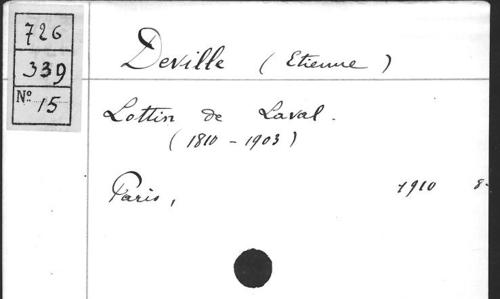 726
339
N° 15
Deville (Etienne)
Lottin de Laval.
(1810 - 1903)
Paris, 1910 8-